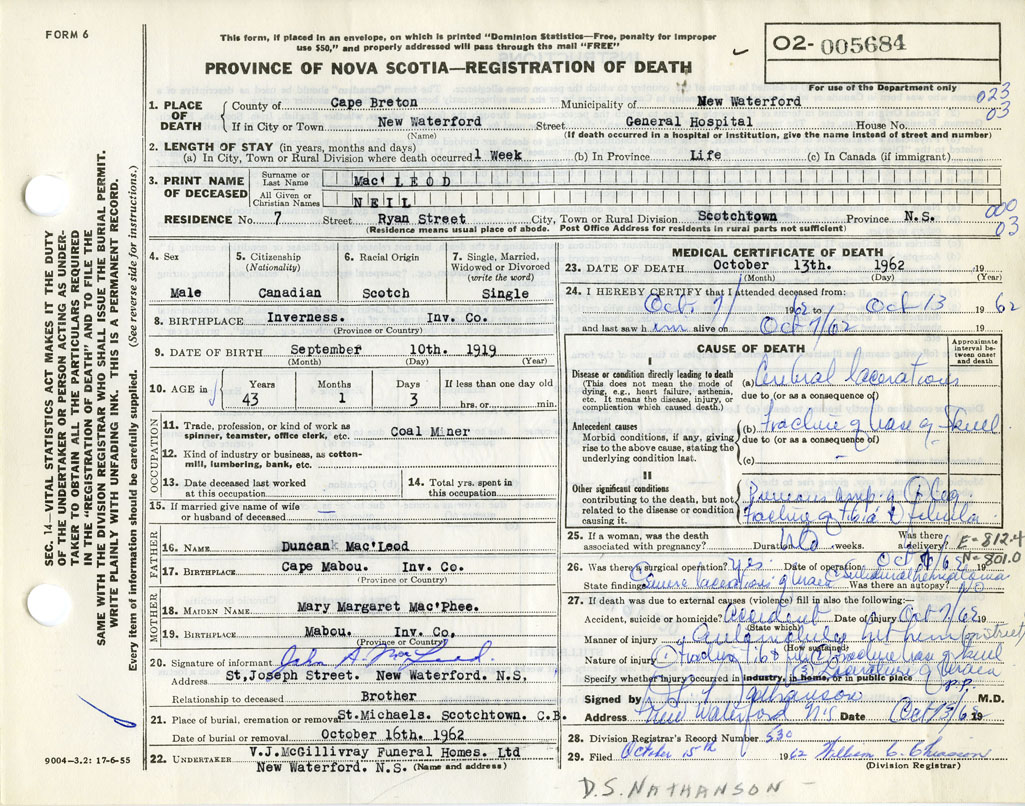 FORM 6
This form, if placed in an envelope, on which is printed "Dominion Statistics—Free, penalty for improper
use $50," and properly addressed will pass through the mail "FREE"
02-005684
PROVINCE OF NOVA SCOTIA—REGISTRATION OF DEATH
For use of the Department only
023
03
1. PLACE OF DEATH
County of Cape Breton Municipality of New Waterford
If in City or Town New Waterford Street General Hospital House No.
(Name) (If death occurred in a hospital or institution, give the name instead of street and number)
2. LENGTH OF STAY (in years, months and days)
(a) In City, Town or Rural Division where death occurred 1 Week (b) In Province Life (c) In Canada (if immigrant)
3. PRINT NAME OF DECEASED
Surname or Last Name Mac' LEOD
All Given or Christian Names NEIL
000
03
RESIDENCE No. 7 Street Ryan Street City, Town or Rural Division Scotchtown Province N.S.
(Residence means usual place of abode. Post Office Address for residents in rural parts not sufficient)
SEC. 14—VITAL STATISTICS ACT MAKES IT THE DUTY
OF THE UNDERTAKER OR PERSON ACTING AS UNDER-
TAKER TO OBTAIN ALL THE PARTICULARS REQUIRED
IN THE "REGISTRATION OF DEATH" AND TO FILE THE
SAME WITH THE DIVISION REGISTRAR WHO SHALL ISSUE THE BURIAL PERMIT.
WRITE PLAINLY WITH UNFADING INK. THIS IS A PERMANENT RECORD.
Every item of information should be carefully supplied. (See reverse side for instructions.)
4. Sex
Male
5. Citizenship
(Nationality)
Canadian
6. Racial Origin
Scotch
7. Single, Married,
Widowed or Divorced
(write the word)
Single
8. BIRTHPLACE Inverness. Inv. Co.
(Province or Country)
9. DATE OF BIRTH September 10th. 1919
(Month) (Day) (Year)
10. AGE in
Years Months Days If less than one day old
43 1 3 hrs. or min.
OCCUPATION
11. Trade, profession, or kind of work as
spinner, teamster, office clerk, etc. Coal Miner
12. Kind of industry or business, as cotton-
mill, lumbering, bank, etc.
13. Date deceased last worked
at this occupation
14. Total yrs. spent in
this occupation
15. If married give name of wife
or husband of deceased —
FATHER
16. NAME Duncan Mac'Leod
17. BIRTHPLACE Cape Mabou. Inv. Co.
(Province or Country)
MOTHER
18. MAIDEN NAME Mary Margaret Mac'Phee.
19. BIRTHPLACE Mabou. Inv. Co.
(Province or Country)
20. Signature of informant John A. MacLeod.
Address St,Joseph Street. New Waterford. N.S.
Relationship to deceased Brother
21. Place of burial, cremation or removal St.Michaels. Scotchtown. C.B.
Date of burial or removal October 16th. 1962
22. UNDERTAKER V.J.McGillivray Funeral Homes. Ltd
New Waterford. N.S. (Name and address)
9004—3.2: 17-6-55
MEDICAL CERTIFICATE OF DEATH
23. DATE OF DEATH October 13th. 1962 19
(Month) (Day) (Year)
24. I HEREBY CERTIFY that I attended deceased from:
Oct. 7/ 1962 to Oct 13 1962
and last saw him alive on Oct 7/62 19
CAUSE OF DEATH
Approximate
interval be-
tween onset
and death
I
Disease or condition directly leading to death
(This does not mean the mode of
dying, e.g., heart failure, asthenia,
etc. It means the disease, injury, or
complication which caused death.)
(a) Cerebral lacerations
due to (or as a consequence of)
Antecedent causes
Morbid conditions, if any, giving
rise to the above cause, stating the
underlying condition last.
(b) Fracture of base of skull
due to (or as a consequence of)
(c) —
II
Other significant conditions
contributing to the death, but not
related to the disease or condition
causing it.
amp. of leg
Fracture of tibia & fibula
25. If a woman, was the death
associated with pregnancy? Duration weeks. Was there a delivery?
E-812.4
N-801.0
26. Was there a surgical operation? Yes. Date of operation Oct 62 19
State findings Severe lacerations of Subdural hematoma Was there an autopsy? NO
27. If death was due to external causes (violence) fill in also the following:—
Accident, suicide or homicide? Accident Date of injury Oct 7/62 19
(State which)
Manner of injury Automobile hit him on street
(How sustained)
Nature of injury (1) Fracture tib & fib (2) Fracture base of skull
(3) Lacerations of brain
Specify whether injury occurred in industry, in home, or in public place P.P.
Signed by Nathanson M.D.
Address New Waterford N.S Date Oct 13/62 19
28. Division Registrar's Record Number 530
29. Filed October 15th 1962 William C. Chiasson
(Division Registrar)
D.S. NATHANSON —